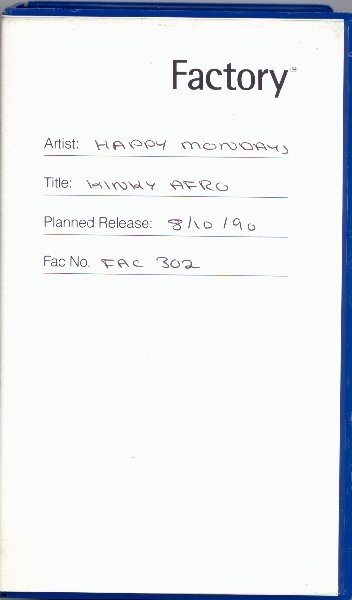 Factory®
Artist: HAPPY MONDAYS
Title: KINKY AFRO
Planned Release: 8/10/90
Fac No. FAC 302